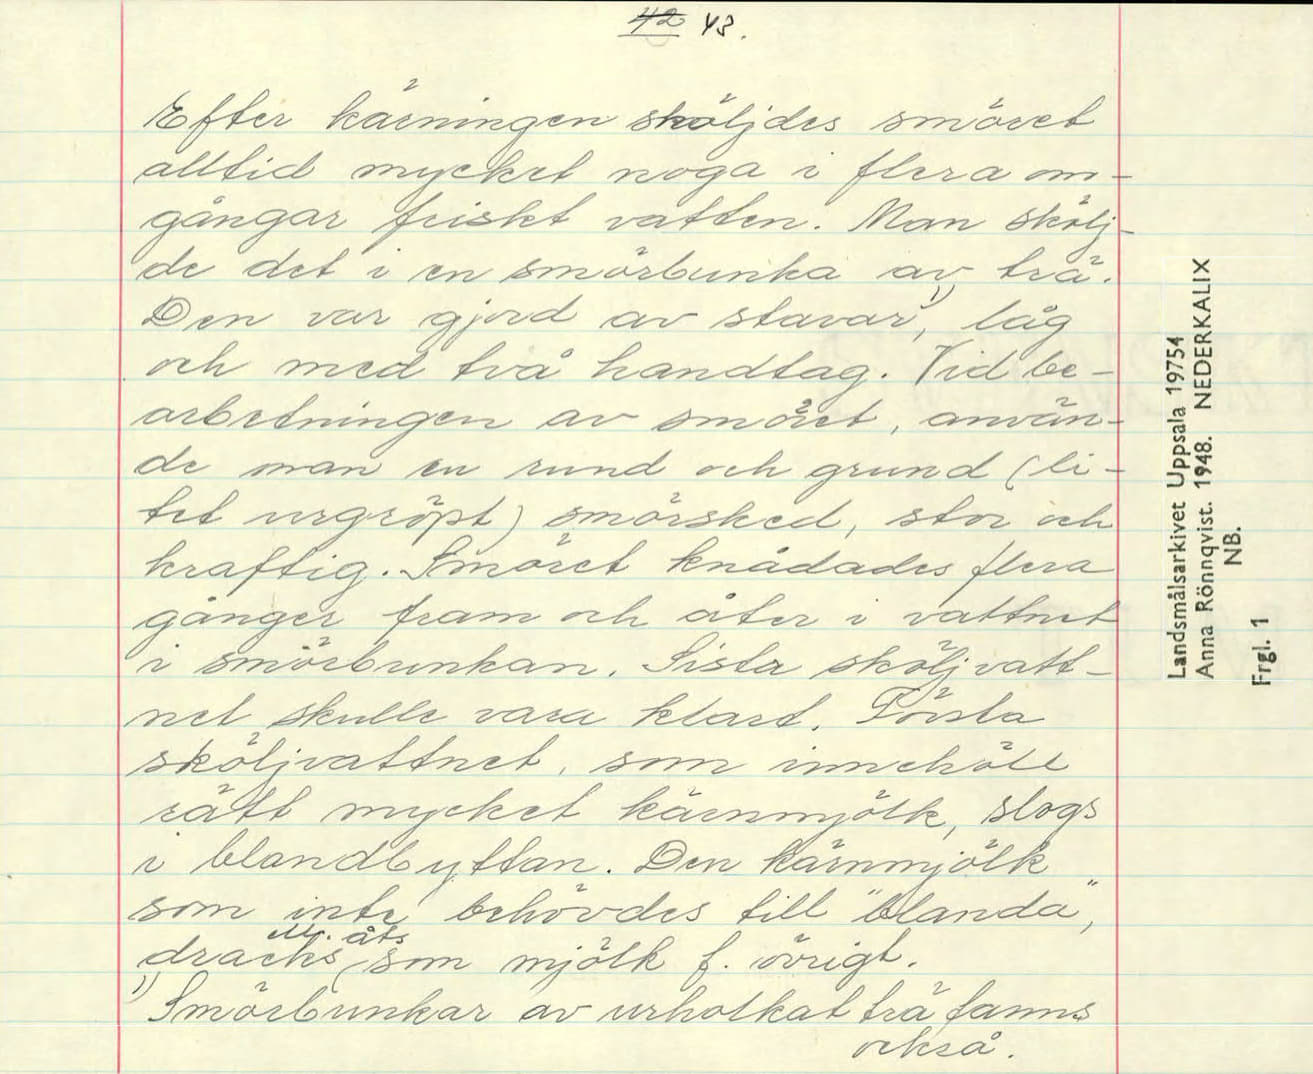 42 43.
Efter kärningen sköljdes smöret
alltid mycket noga i flera om-
gångar friskt vatten. Man skölj-
de det i en smörbunka av trä.
Den var gjord av stavar¹⁾, låg
och med två handtag. Vid be-
arbetningen av smöret, använ-
de man en rund och grund (li-
tet urgröpt) smörsked, stor och
kraftig. Smöret knådades flera
gånger fram och åter i vattnet
i smörbunkan. Sista sköljvatt-
net skulle vara klart. Första
sköljvattnet, som innehöll
rätt mycket kärnmjölk, slogs
i blandbyttan. Den kärnmjölk
som inte behövdes till "blanda",
ell. åts
dracks som mjölk f. övrigt.
¹⁾ Smörbunkar av urholkat trä fanns
också.
Landsmålsarkivet Uppsala 19754
Anna Rönnqvist. 1948. NEDERKALIX
NB.
Frgl. 1